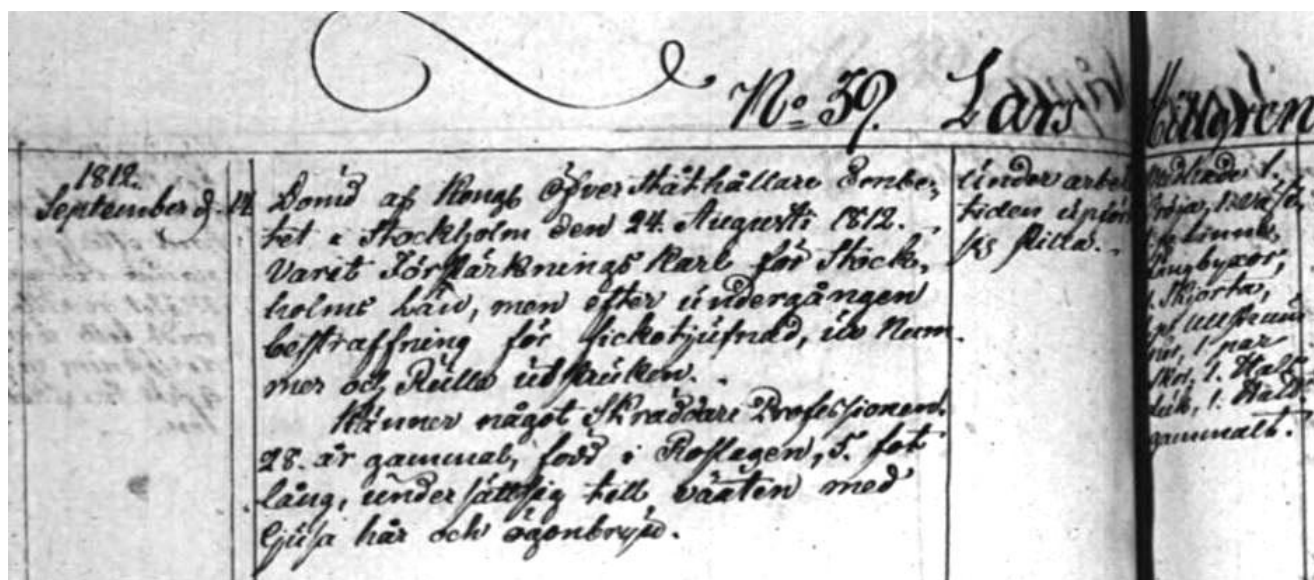 No 39. Lars
1812.
September d. 14
Dömd af Kongl Öfver Ståthållare Embe-
tet i Stockholm den 24. Augusti 1812.
Varit Förstärknings Karl för Stock-
holms Län, men efter undergången
bestraffning för ficktjufnad, ur Num-
mer och Rulla utstruken.
Känner något Skräddare Professionen.
28. år gammal, född i Roslagen, 5. fot
lång, undersättsig till växten med
ljusa hår och ögonbryn.
Under arbets
tiden upförd
sig stilla.
1.
Tröja, 1. Väst,
Långbyxor,
1. Skjorta,
1. par
1. Hals
duk, 1. Hatt
gammalt.